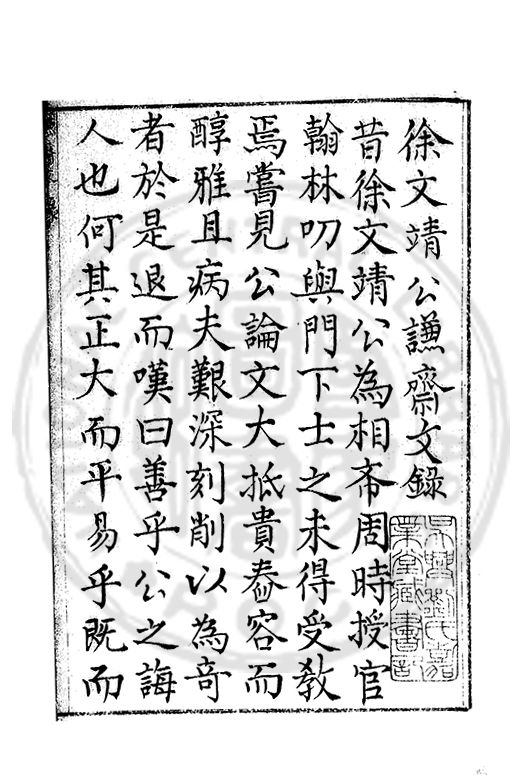 徐文靖公謙齋文錄
昔徐文靖公為相斋周時授官
翰林叨與門下士之末得受敎
焉嘗見公論文大抵貴舂容而
醇雅且病夫艱深刻削以為竒
者於是退而嘆曰善乎公之誨
人也何其正大而平易乎既而
吳興劉氏嘉
業堂藏書記